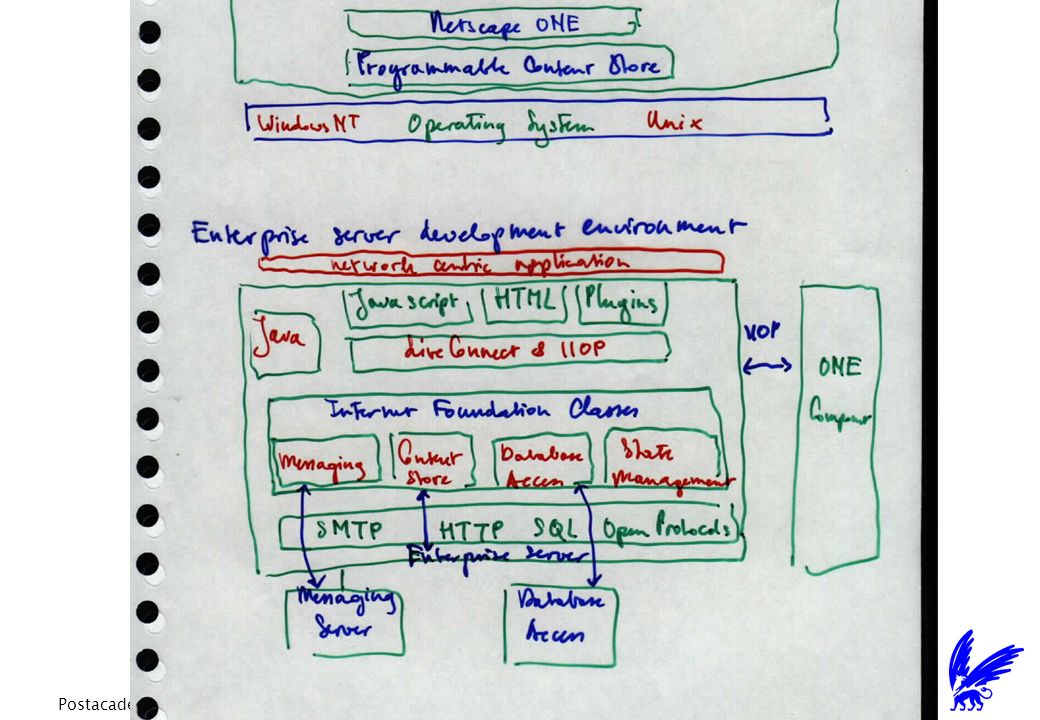 Netscape ONE
Programmable Content Store
Windows NT Operating System Unix
Enterprise server development environment
network centric application
Javascript HTML Plugins
Java
Live Connect & IIOP
IIOP
ONE
Composer
Internet Foundation Classes
Messaging Content Store Database Access State Management
SMTP HTTP SQL Open Protocols
Enterprise Server
Messaging Server
Database Access
Postacade